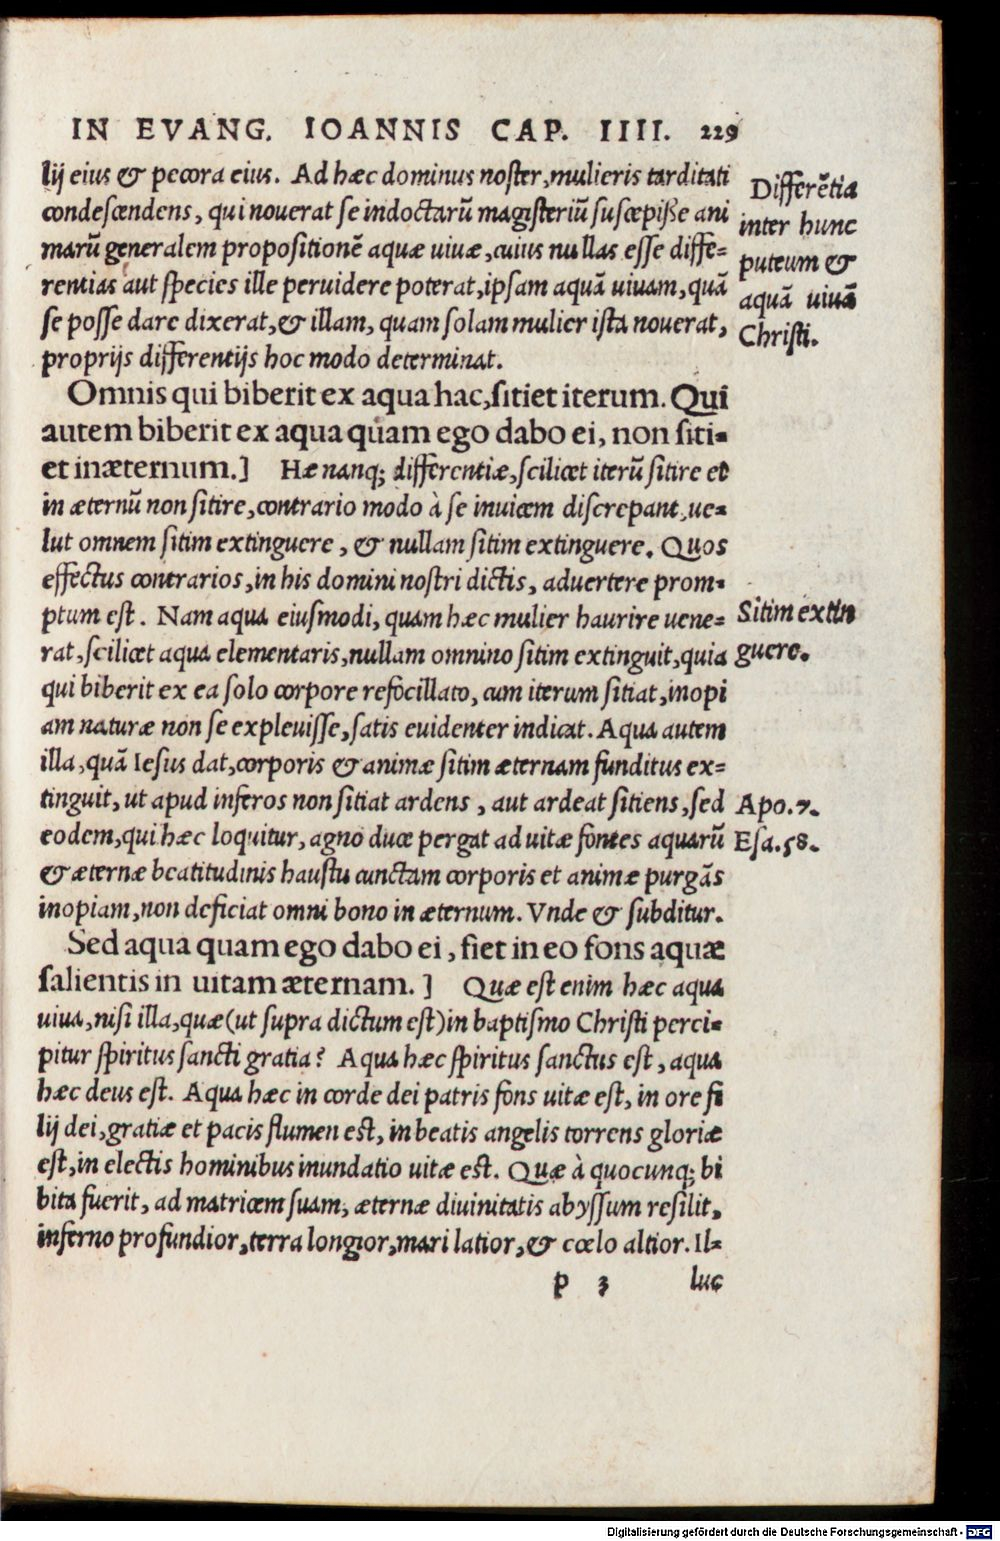 IN EVANG. IOANNIS CAP. IIII. 229
lij eius & pecora eius. Ad hæc dominus noster, mulieris tarditati
condescendens, qui nouerat se indoctarū magisteriū suscepiße ani
marū generalem propositionē aquæ uiuæ, cuius nullas esse diffe=
rentias aut species ille peruidere poterat, ipsam aquā uiuam, quā
se posse dare dixerat, & illam, quam solam mulier ista nouerat,
proprijs differentijs hoc modo determinat.
Differētia
inter hunc
puteum &
aquā uiuā
Christi.
Omnis qui biberit ex aqua hac, sitiet iterum. Qui
autem biberit ex aqua quam ego dabo ei, non siti=
et inæternum.] Hæ nanq; differentiæ, scilicet iterū sitire et
in æternū non sitire, contrario modo à se inuicem discrepant, ue=
lut omnem sitim extinguere, & nullam sitim extinguere. Quos
effectus contrarios, in his domini nostri dictis, aduertere prom=
ptum est. Nam aqua eiusmodi, quam hæc mulier haurire uene=
rat, scilicet aqua elementaris, nullam omnino sitim extinguit, quia
qui biberit ex ea solo corpore refocillato, cum iterum sitiat, inopi
am naturæ non se expleuisse, satis euidenter indicat. Aqua autem
illa, quā Iesus dat, corporis & animæ sitim æternam funditus ex=
tinguit, ut apud inferos non sitiat ardens, aut ardeat sitiens, sed
eodem, qui hæc loquitur, agno duce pergat ad uitæ fontes aquarū
& æternæ beatitudinis haustu cunctam corporis et animæ purgās
inopiam, non deficiat omni bono in æternum. Vnde & subditur.
Sitim extin
guere.
Apo. 7.
Esa. 58.
Sed aqua quam ego dabo ei, fiet in eo fons aquæ
salientis in uitam æternam.] Quæ est enim hæc aqua
uiua, nisi illa, quæ (ut supra dictum est) in baptismo Christi perci=
pitur spiritus sancti gratia? Aqua hæc spiritus sanctus est, aqua
hæc deus est. Aqua hæc in corde dei patris fons uitæ est, in ore fi
lij dei, gratiæ et pacis flumen est, in beatis angelis torrens gloriæ
est, in electis hominibus inundatio uitæ est. Quæ à quocunq; bi
bita fuerit, ad matricem suam, æternæ diuinitatis abyssum resilit,
inferno profundior, terra longior, mari latior, & cœlo altior. Il=
p 3 luc
Digitalisierung gefördert durch die Deutsche Forschungsgemeinschaft - DFG